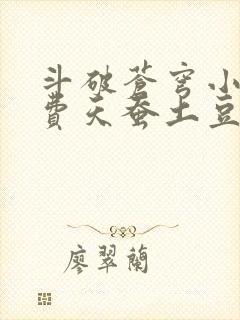 斗破苍穹小
費天蚕土豆
廖翠蘭